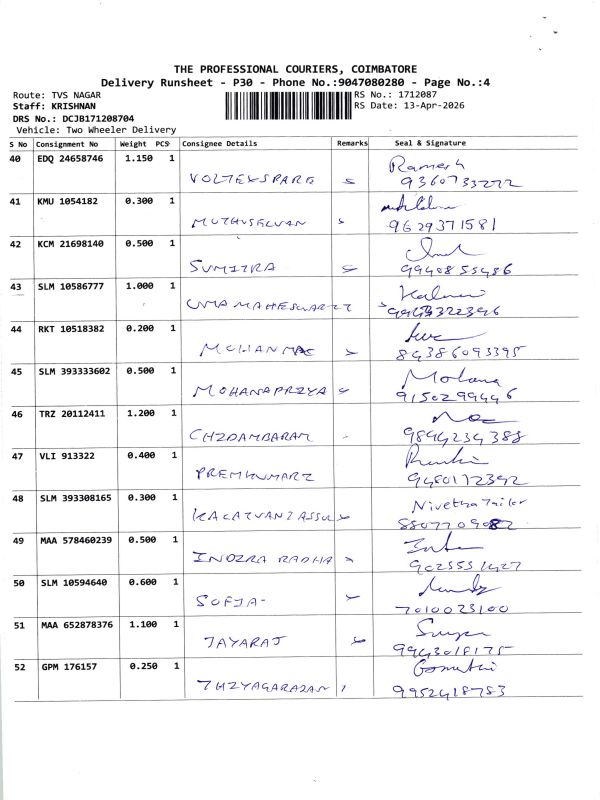 THE PROFESSIONAL COURIERS, COIMBATORE
Delivery Runsheet - P30 - Phone No.:9047080280 - Page No.:4
Route: TVS NAGAR RS No.: 1712087
Staff: KRISHNAN RS Date: 13-Apr-2026
DRS No.: DCJB171208704
Vehicle: Two Wheeler Delivery
S No Consignment No Weight PCS Consignee Details Remarks Seal & Signature
40 EDQ 24658746 1.150 1 Ramesh
VOLTEKSPARE 9360733272
41 KMU 1054182 0.300 1
MUTHUSELVAN 9629371581
42 KCM 21698140 0.500 1
SUMITRA 9940855486
43 SLM 10586777 1.000 1
UMA MAHESWARI
44 RKT 10518382 0.200 1
84386093395
45 SLM 393333602 0.500 1 Mohana
MOHANAPRIYA 9150299446
46 TRZ 20112411 1.200 1
CHIDAMBARAM 9894234388
47 VLI 913322 0.400 1
PREMKUMARI 9480172392
48 SLM 393308165 0.300 1 Nivetha Tailor
49 MAA 578460239 0.500 1
INDIRA RADHA 9025551427
50 SLM 10594640 0.600 1
SOFIA- 7010023100
51 MAA 652878376 1.100 1
JAYARAJ 9943018175
52 GPM 176157 0.250 1 Gomathi
THIYAGARAJAN 9952418783